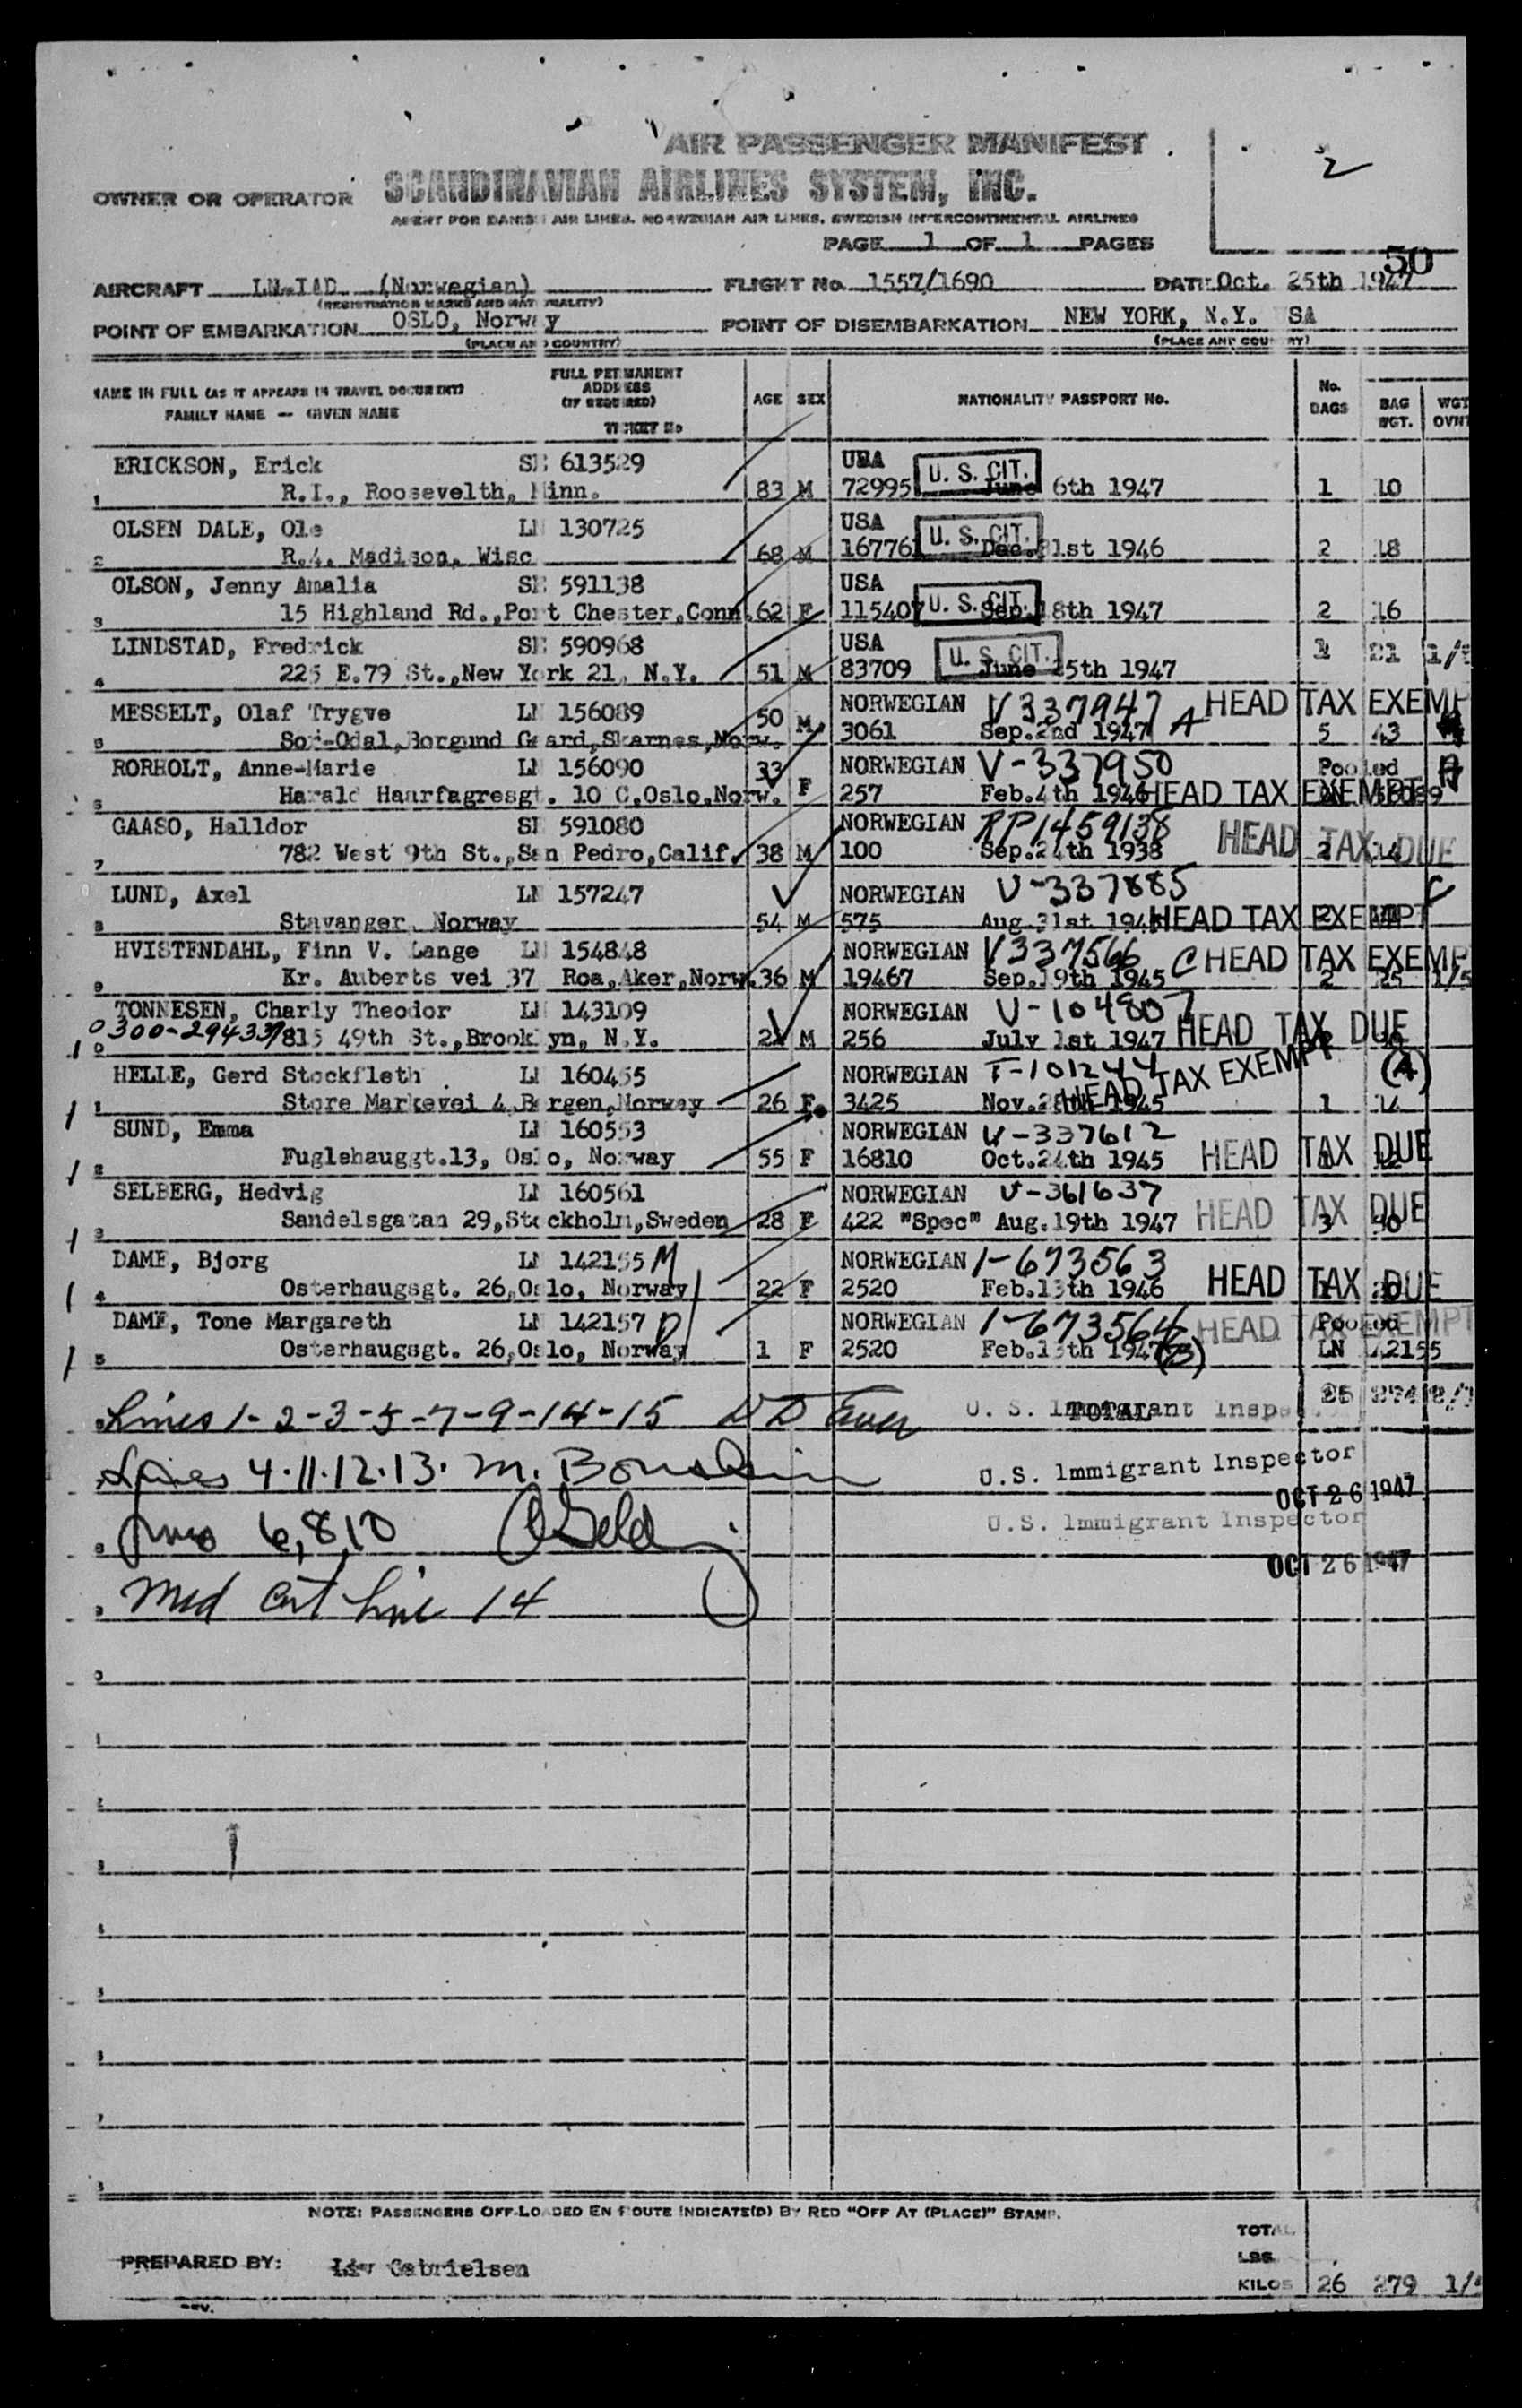 2
AIR PASSENGER MANIFEST
OWNER OR OPERATOR SCANDINAVIAN AIRLINES SYSTEM, INC.
AGENT FOR DANISH AIR LINES, NORWEGIAN AIR LINES, SWEDISH INTERCONTINENTAL AIRLINES
PAGE 1 OF 1 PAGES
50
AIRCRAFT LN-IAD (Norwegian) FLIGHT No. 1557/1690 DATE Oct. 25th 1947
(REGISTRATION MARKS AND NATIONALITY)
POINT OF EMBARKATION OSLO, Norway POINT OF DISEMBARKATION NEW YORK, N.Y. USA
(PLACE AND COUNTRY) (PLACE AND COUNTRY)
NAME IN FULL (AS IT APPEARS IN TRAVEL DOCUMENT) FAMILY NAME — GIVEN NAME FULL PERMANENT ADDRESS (IF REQUIRED) TICKET No AGE SEX NATIONALITY PASSPORT No. No. BAGS BAG WGT. WGT OVNT
ERICKSON, Erick SE 613529 USA U. S. CIT.
1 R.I., Roosevelth, Minn. 83 M 72995 June 6th 1947 1 10
OLSEN DALE, Ole LN 130725 USA U. S. CIT.
2 R.4. Madison, Wisc 68 M 16776 Dec. 31st 1946 2 18
OLSON, Jenny Amalia SE 591138 USA U. S. CIT.
3 15 Highland Rd.,Port Chester,Conn. 62 F 115407 Sep. 18th 1947 2 16
LINDSTAD, Fredrick SE 590968 USA U. S. CIT.
4 225 E.79 St.,New York 21, N.Y. 51 M 83709 June 25th 1947 1 21 1/
MESSELT, Olaf Trygve LN 156089 50 M NORWEGIAN V337947 A HEAD TAX EXEMP
5 Sor-Odal,Borgund Gaard,Skarnes,Norw. 3061 Sep. 2nd 1947 5 43
RORHOLT, Anne-Marie LN 156090 33 F NORWEGIAN V-337950 Pooled A
6 Harald Haarfagresgt. 10 C,Oslo,Norw. 257 Feb.4th 1946 HEAD TAX EXEMPT
GAASO, Halldor SE 591080 NORWEGIAN RP1459138 HEAD TAX DUE
7 782 West 9th St.,San Pedro,Calif. 38 M 100 Sep.24th 1938 2
LUND, Axel LN 157247 NORWEGIAN V-337885 C
8 Stavanger, Norway 54 M 575 Aug.31st 194 HEAD TAX EXEMPT
HVISTENDAHL, Finn V. Lange LN 154848 NORWEGIAN V337566 C HEAD TAX EXEMP
9 Kr. Auberts vei 37 Roa,Aker,Norw. 36 M 19467 Sep.19th 1945 2 25 1/5
TONNESEN, Charly Theodor LN 143109 NORWEGIAN V-104807
10 0300-294337 815 49th St.,Brooklyn, N.Y. M 256 July 1st 1947 HEAD TAX DUE
HELLE, Gerd Stockfleth LN 160455 NORWEGIAN T-101244 HEAD TAX EXEMPT (A)
11 Store Markevei 4,Bergen,Norway 26 F 3425 Nov.28th 1945 1 14
SUND, Emma LN 160553 NORWEGIAN V-337612
12 Fuglehauggt.13, Oslo, Norway 55 F 16810 Oct.24th 1945 HEAD TAX DUE
SELBERG, Hedvig LN 160561 NORWEGIAN V-361637
13 Sandelsgatan 29,Stockholm,Sweden 28 F 422 "Spec" Aug.19th 1947 HEAD TAX DUE 3
DAME, Bjorg LN 142155 M NORWEGIAN 1-673563
14 Osterhaugsgt. 26,Oslo, Norway 22 F 2520 Feb.13th 1946 HEAD TAX DUE
DAME, Tone Margareth LN 142157 D NORWEGIAN 1-673564 HEAD TAX EXEMPT Pooled
15 Osterhaugsgt. 26,Oslo, Norway 1 F 2520 Feb.13th 1947 (3) LN 142155
Lines 1-2-3-5-7-9-14-15 U. S. Immigrant Inspe TOTAL
Lines 4.11.12.13. M. U.S. Immigrant Inspector
OCT 26 1947
Lines 6,8,10 U.S. Immigrant Inspector
OCT 26 1947
Med Cert line 14
NOTE: PASSENGERS OFF-LOADED EN ROUTE INDICATE(D) BY RED "OFF AT (PLACE)" STAMP.
TOTAL
PREPARED BY: Liv Gabrielsen LBS
KILOS 26 279 1/
REV.